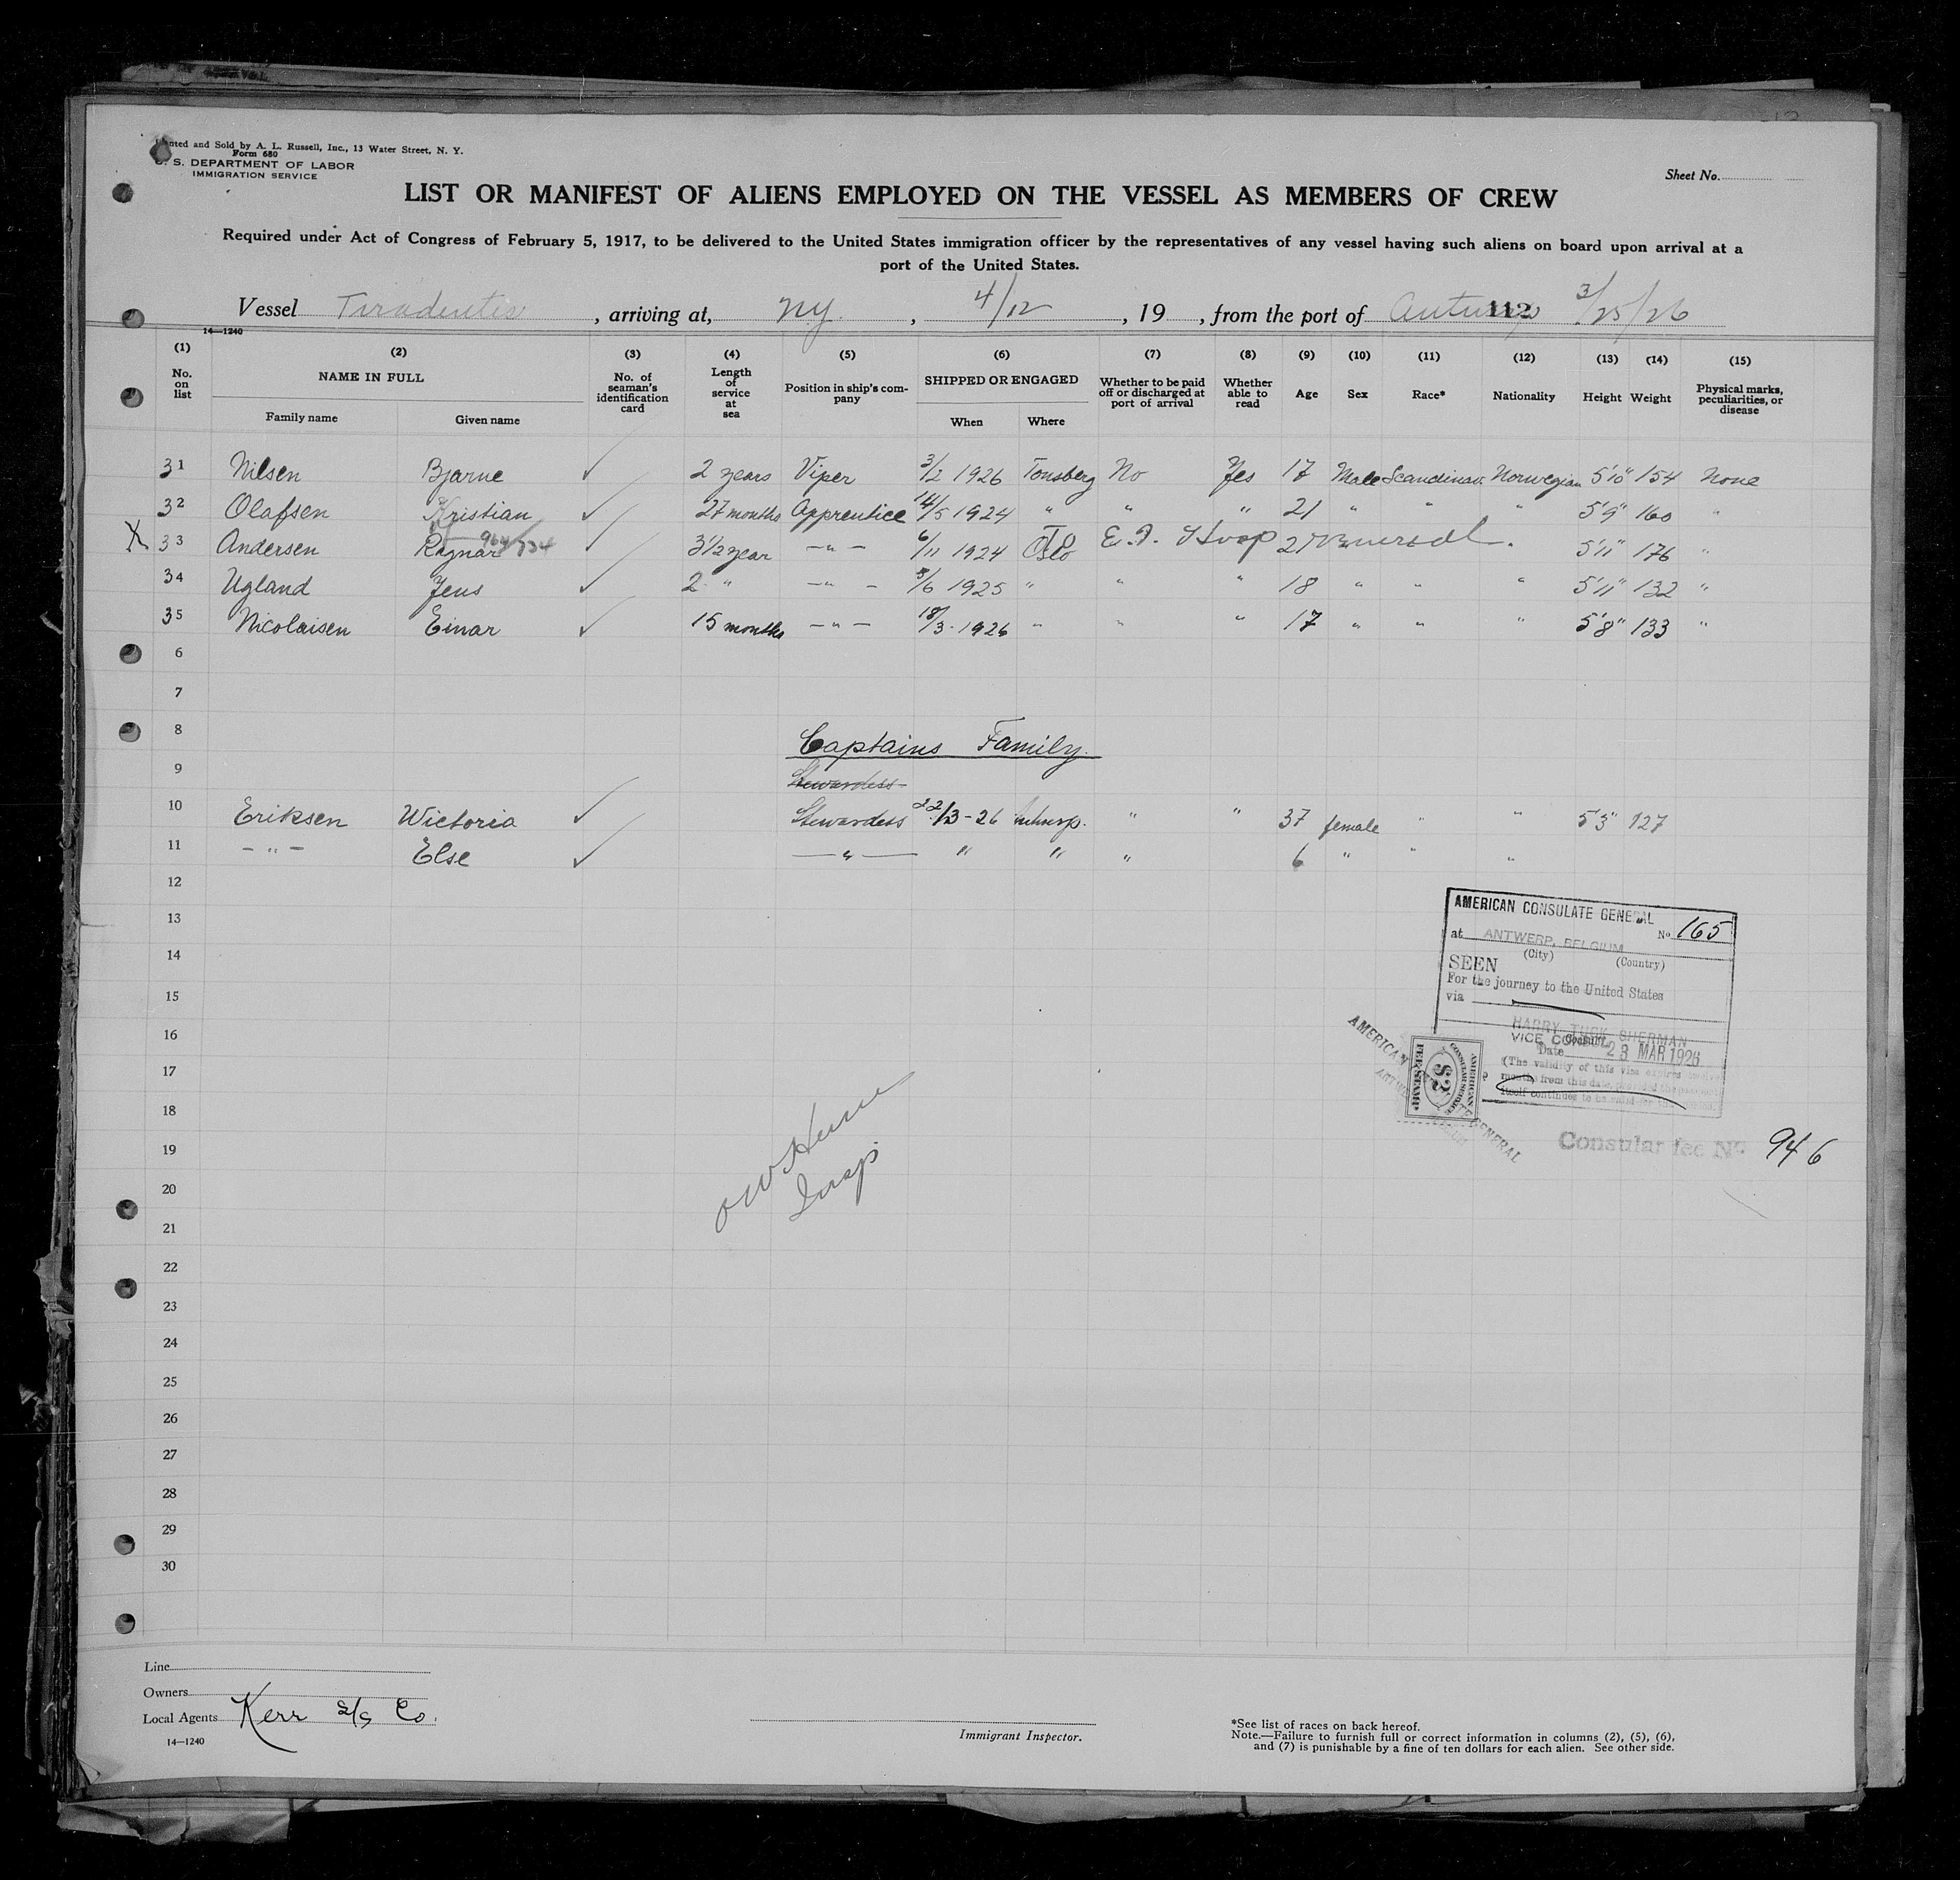 Printed and Sold by A. L. Russell, Inc., 13 Water Street, N. Y.
Form 680
U. S. DEPARTMENT OF LABOR
IMMIGRATION SERVICE
Sheet No.
LIST OR MANIFEST OF ALIENS EMPLOYED ON THE VESSEL AS MEMBERS OF CREW
Required under Act of Congress of February 5, 1917, to be delivered to the United States immigration officer by the representatives of any vessel having such aliens on board upon arrival at a
port of the United States.
Vessel Tiradentes, arriving at, NY, 4/12, 19 , from the port of Antwerp 3/25/26
112
14—1240
(1) (2) (3) (4) (5) (6) (7) (8) (9) (10) (11) (12) (13) (14) (15)
No. on list
NAME IN FULL
Family name Given name
No. of seaman's identification card
Length of service at sea
Position in ship's company
SHIPPED OR ENGAGED
When Where
Whether to be paid off or discharged at port of arrival
Whether able to read
Age Sex Race* Nationality Height Weight
Physical marks, peculiarities, or disease
31 Nilsen Bjarne ✓ 2 years Viper 3/2 1926 Tonsberg No Yes 17 Male Scandinav. Norwegian 5'10" 154 None
32 Olafsen Kristian ✓ 27 months Apprentice 14/5 1924 " " " 21 " " " 5'9" 160 "
964/734
X 33 Andersen Ragnar ✓ 3½ year —"— 6/11 1924 Oslo To E. I. Hosp 21 5'11" 176 "
34 Ugland Jens ✓ 2 " —"— 5/6 1925 " " " 18 " " " 5'11" 132 "
35 Nicolaisen Einar ✓ 15 months —"— 18/3 1926 " " " 17 " " " 5'8" 133 "
6
7
8 Captains Family.
9 Stewardess
10 Eriksen Wictoria ✓ Stewardess 22/3-26 Antwerp. " " 37 female " " 5'3" 127
11 —"— Else ✓ —"— " " " 6 " " "
12
13
14
15
16
17
18
19
20
21
22
23
24
25
26
27
28
29
30
AMERICAN CONSULATE GENERAL
at ANTWERP, BELGIUM No 165
(City) (Country)
SEEN
For the journey to the United States
via
HARRY TUCK SHERMAN
VICE CONSUL
Date 23 MAR 1926
(The validity of this visa expires twelve
months from this date, provided the passport
itself continues to be valid for that period.)
AMERICAN CONSULAR SERVICE
$2
FEE STAMP
AMERICAN GENERAL
Consular fee No. 946
Insp
Line
Owners
Local Agents Kerr S/S Co.
14—1240
Immigrant Inspector.
*See list of races on back hereof.
Note.—Failure to furnish full or correct information in columns (2), (5), (6),
and (7) is punishable by a fine of ten dollars for each alien. See other side.